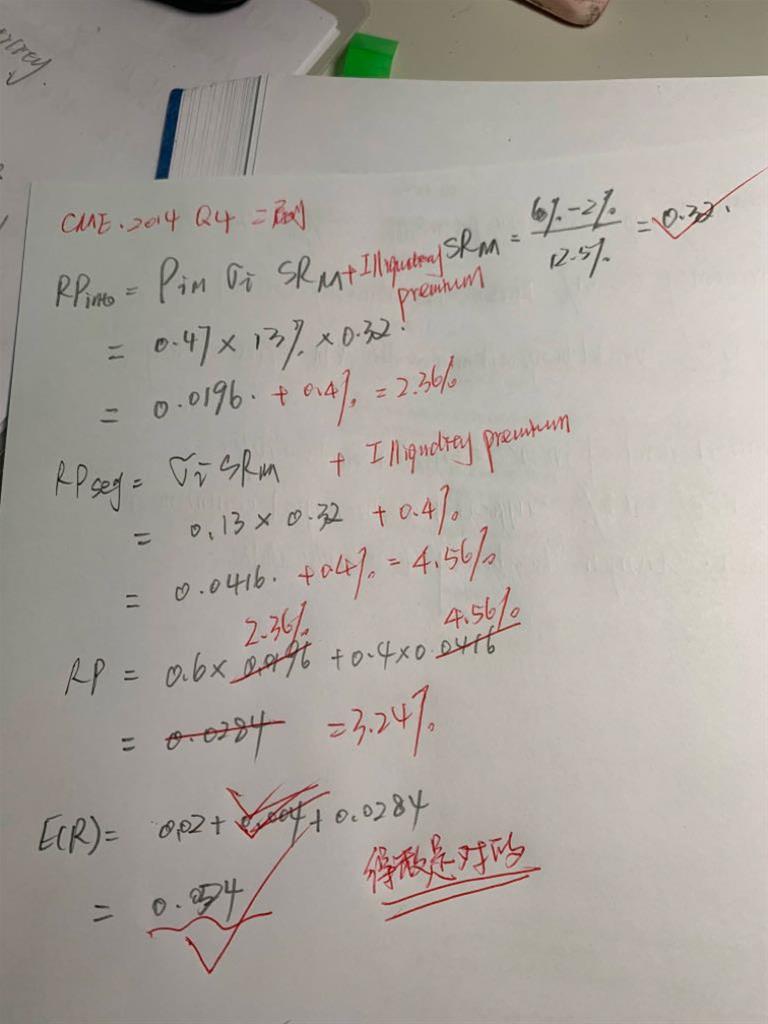 CME.2014 Q4 二刷
RPinte = ρiM σi SRM + Illiquidity premium SRM = 6%-2% / 12.5% = 0.32.
= 0.47 × 13% × 0.32.
= 0.0196. + 0.4% = 2.36%
RPseg = σi SRM + Illiquidity premium
= 0.13 × 0.32 + 0.4%
= 0.0416. + 0.4% = 4.56%
2.36% 4.56%
RP = 0.6× 0.0196 + 0.4×0.0416
= 0.0284 = 3.24%
E(R) = 0.02 + 0.004 + 0.0284
= 0.0524
得数是对的